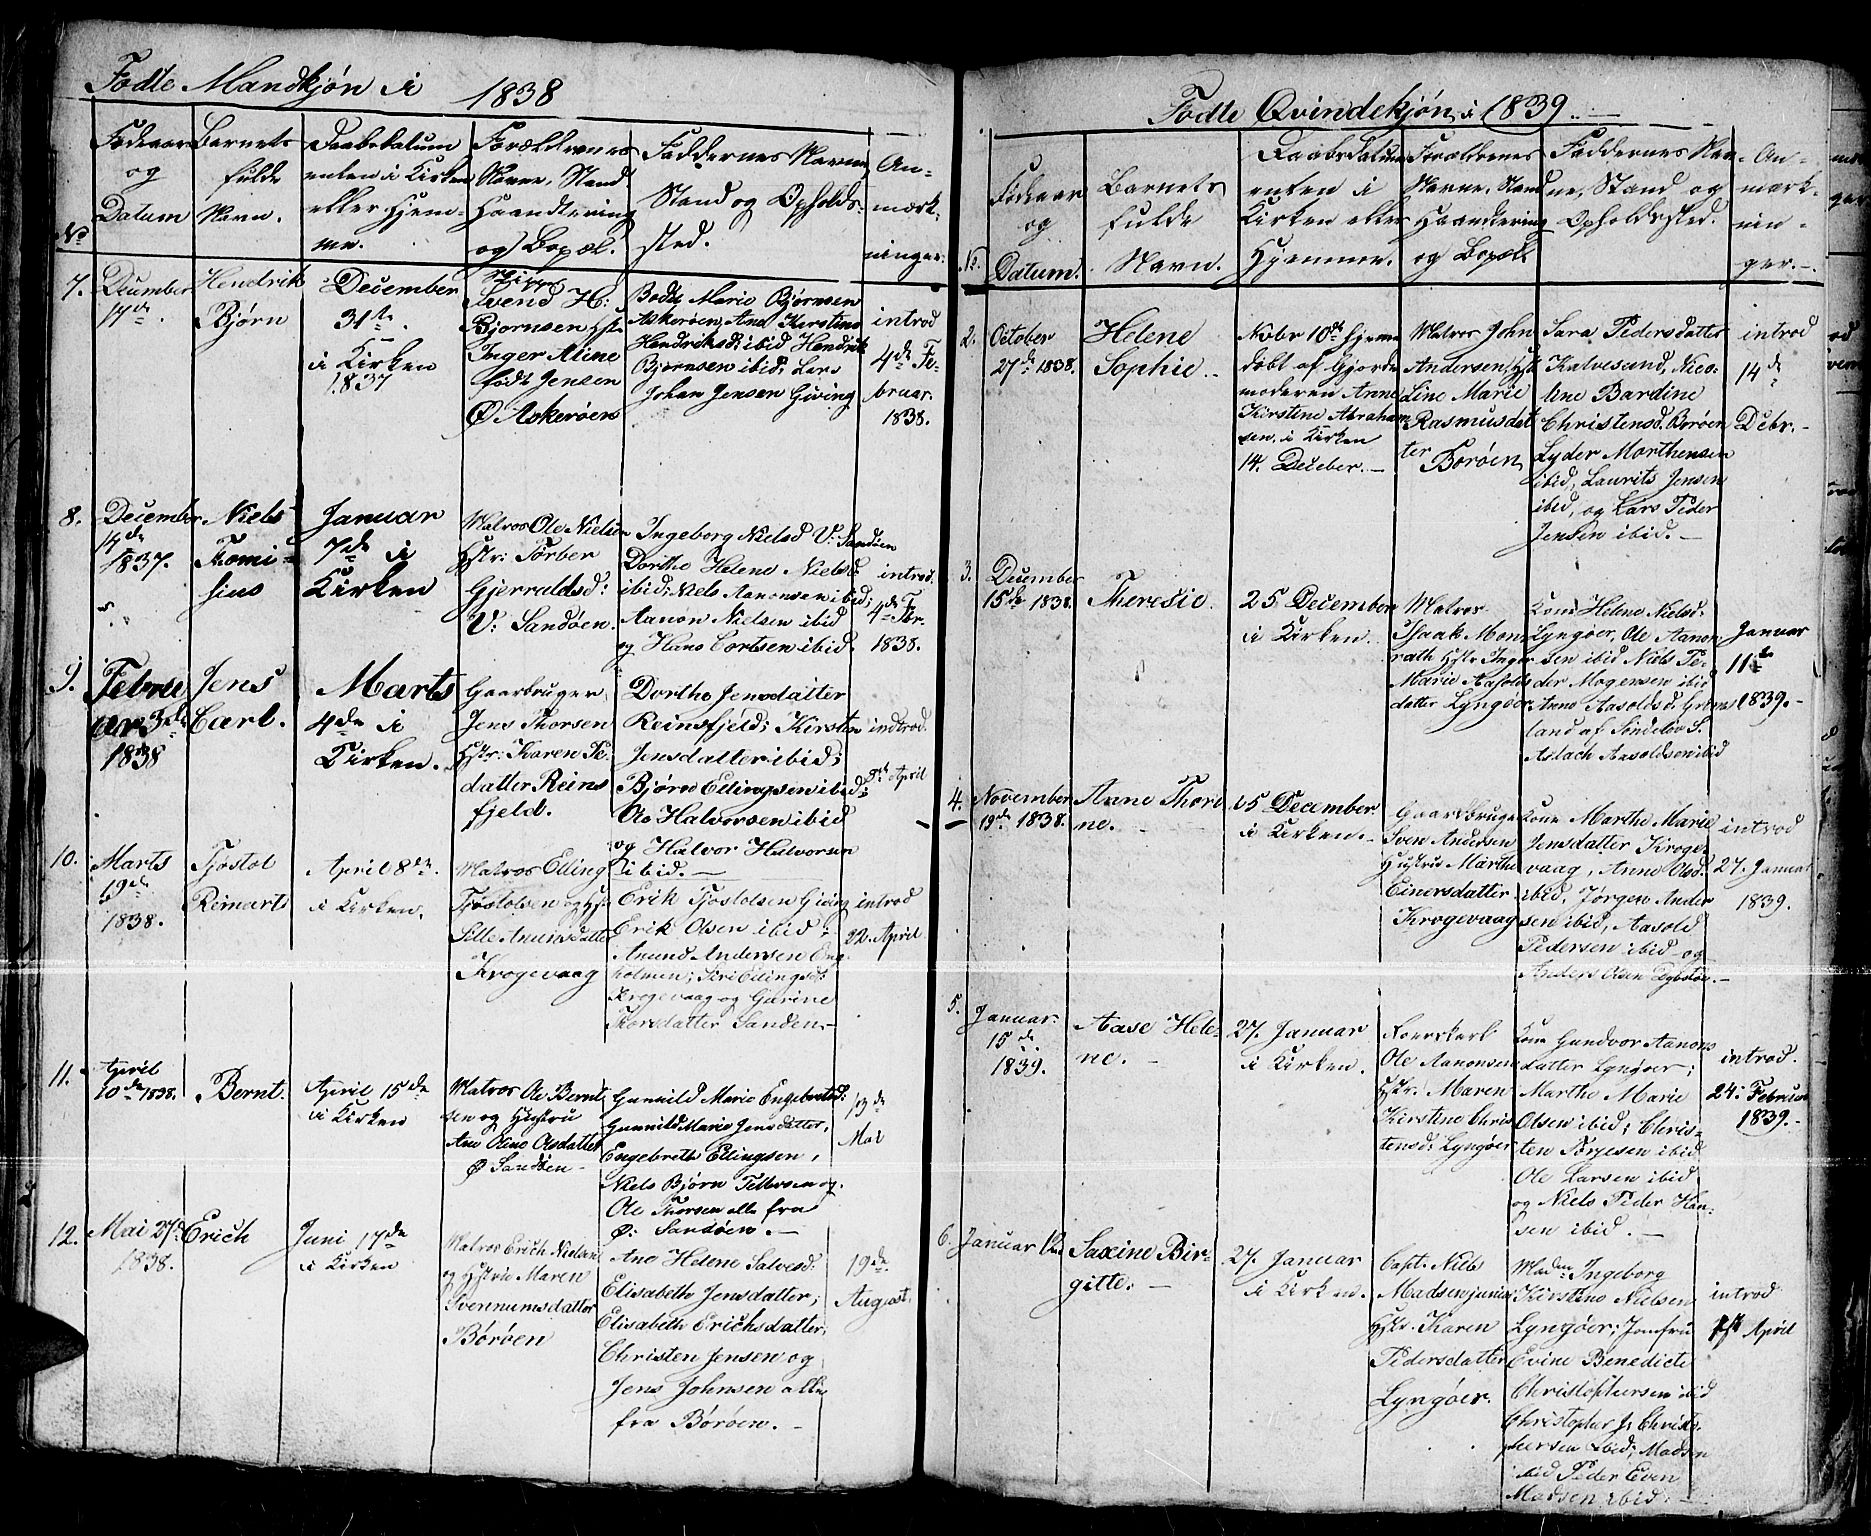 Fødte Mandkjøn i 1838
No
Fødeaar
og
Datum
Barnets
fulde
Navn.
Daabsdatum
enten i Kirken
eller Hjem-
me.
Forældrenes
Navne, Stand
Haandtering
og Bopæl.
Faddernes Navne
Stand og Opholds-
sted.
An-
mærk-
ninger.
7.
December
17de.
Hendrik
Bjørn
December
31te.
i Kirken
1837
Svend H:
Bjornsen Hst:
Inger Aline
født Jensen
Ø Askerøen
Bodil Marie Bjørnsen
Askerøen, Ane Kirstine
Hendriksd: ibid Hendrik
Bjørnsen ibid; Lars
Johan Jensen Giving
introd
4de Fe-
bruar.
1838.
8.
December
14de
1837.
Niels
Thomi-
sius
Januar
7de i
Kirken
Matros Ole Nielsen
Hstr: Torber
Gjerraldsd:
V: Sandøen.
Ingeborg Nielsd V: Sandøen
Dorthe Helene Nielsd
ibid; Niels Aanonsen ibid;
Aanon Nielsen ibid
og Hans Cortsen ibid.
introd.
4de Febr.
1838.
9.
Febru
ar 3de
1838
Jens
Carl.
Marts
4de i
Kirken.
Gaarbruger
Jens Thorsen
Hstr: Karen Pe-
datter Reins
fjeld.
Dorthe Jensdatter
Reinsfjeld; Kirsten
Jensdatter ibid;
Bjørn Ellingsen ibid;
As Halvorsen ibid
og Halvor Halvorsen
ibid. —
indtrod.
8de April
10.
Marts
19de
1838.
Tjostol
Reinart
April 8de.
i Kirken.
Matros Elling
Tjostolsen og Hst:
Sille Anunsdatter
Krogevaag
Erik Tjostolsen Giving
Erik Olsen ibid;
Anund Andersen Eng-
holmen; Siri Ellingsd:
Krogevaag og Gurine
Thorsdatter Sanden.-
introd
22. April
11.
April
10de 1838.
Bernt.
April 15de
i Kirken
Matros Ole Bernt
sen og Hustru
Ane Oline Olsdatter
Ø Sandøen-
Gunild Marie Engebretsd:
Gunnild Marie Jensdatter,
Engebreth Ellingsen,
Niels Bjørn Tellefsen og
Ole Thorsen alle fra
Ø: Sandøen. —
13de
Mai
12.
Mai 27de
1838.
Erich
Juni 17de
i Kirken
Matros Erich Nielsen
og Hstrue Maren
Svennumsdatter
Børøen
Ane Helene Salvesd:
Elisabeth Jensdatter;
Elisabeth Erichsdatter;
Christen Jensen og
Jens Johnsen alle
fra Børøen. -
19de
August.
Fødte Qvindekjøn i 1839. —
No.
Fødeaar
og
Datum.
Barnets
fulde
Navn.
Daabsdatum
enten i
Kirken eller
Hjemme.
Forældrenes
Navne, Stand
Haandtering
og Bopæl.
Faddernes Nav-
ne, Stand og
Opholdssted.
An-
mærk-
nin-
ger.-
2.
October
27de 1838.
Helene
Sophie.
Nobr 10de hjeme
døbt af Gjorde
moderen Anne
Kirstine Abraham
sen, i Kirken
14. Deceber.-
Matros John
Andersen, Hst
Line Marie
Rasmusdat
ter
Borøen
Sara Pedersdatter
Kalvesund, Nico-
line Bardine
Christensd. Borøen
Lyder Morthensen
ibid, Laurits Jensen
ibid, og Lars Peder
Jensen ibid. -
introd
14de
Debr.-
3.
December
15de 1838.
Theresie.
25 December
i Kirken.
Matros
Isaak Mon-
rath Hstr. Inger
Marie Aasolds
datter Lyngøer
Kone Helene Nielsd:
Lyngøer, Ole Aanon
sen ibid Niels Pe-
der Mogensen ibid
Anne Aasoldsd:
land af Søndeløv S.
Aslach Aasoldsen ibid
Januar
11te
1839.-
4.
November
19de 1838.
Anne Thori
ne. -
25 December
i Kirken.-
Gaardbruge
Sven Andersen
Hustrue Marthe
Einersdatter
Krogevaag
Kone Marthe Marie
Jensdatter Kroge-
vaag, Anne Olsd.
ibid, Jørgen Ander
sen ibid, Aasold
Pedersen ibid og
Anders Olsen
introd
27. Januar
1839.
5.
Januar
15de
1839.
Aase Hele-
ne. -
27. Januar
i Kirken.
Ole Aanonsen
Hstr. Maren
Kirstine Chris
tensd: Lyngøer
Kone Gundvor Aanons
datter Lyngøer;
Marthe Marie
Olsen ibid; Chris-
ten Torjesen ibid
Ole Larsen ibid
og Niels Peder Han-
sen ibid. -
introd.
24: Februar
1839.-
6.
Januar 12
Saxine Bir-
gitte. -
27. Januar
i Kirken.
Capt. Niels
Madsen junior
Hstr. Karen
Pedersdatter
Lyngøer.
Madm Ingeborg
Kirstine Nielsen
Lyngøer; Jomfru
Evine Benedicte
Christophersen ibid
Christopher Js Christo-
phersen ibid; Madsen
ibid Peder Even
Madsen ibid. -
introd
1st April